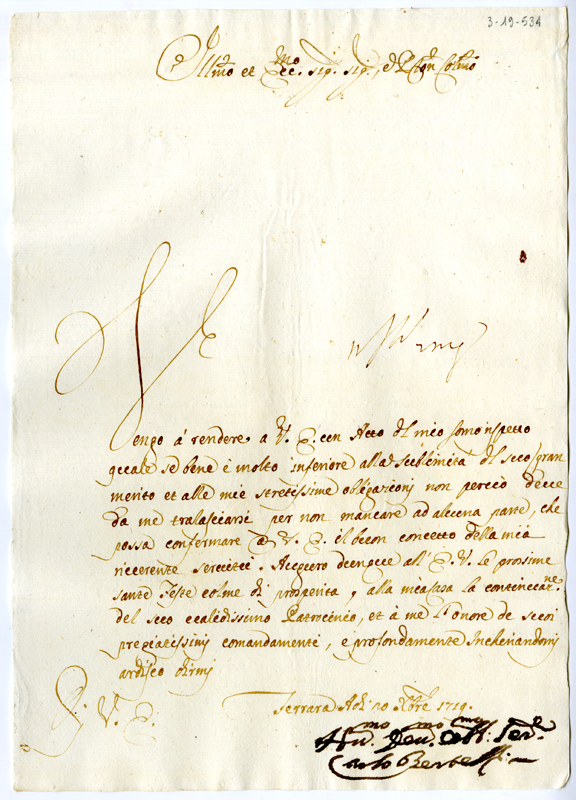 3-19-534
Ill.mo et Ecc.mo Sig. Sig. e Pron Col.mo
Vengo á rendere a V. E. cen Atto del mio somo rispetto
quale se bene è molto inferiore alla sublimità del suo gran
merito et alle mie stretissime obligazioni non perciò deve
da me tralasciarsi per non mancare ad alcuna parte, che
possa confermare a V. E. il buon concetto della mia
riverente servitù. Auguro dunque all' E. V. le prossime
sante Feste colme di prosperità, alla mia casa la continuaz.ne
del suo validissimo Patrocinio, et à me l'onore de suoi
pregiatissimi comandamenti, e profondamente Inchinandomi
ardisco dirmi
Di V. E.
Ferrara Adi 20 Xbre 1719.
Hu.mo Deu.mo Obb.mo Ser.e
Carlo Bertelli